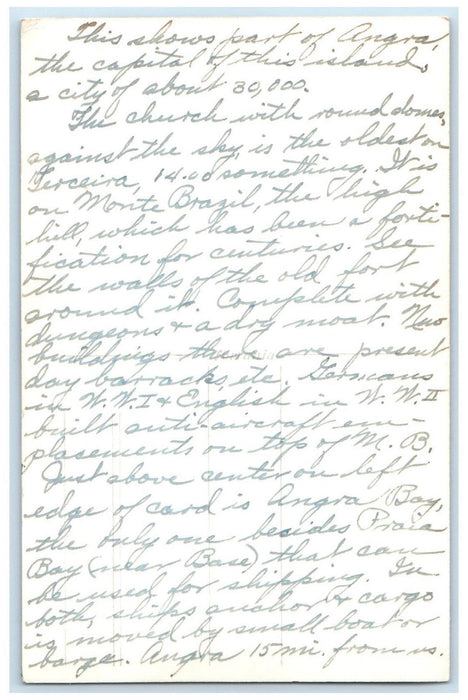 This shows part of Angra,
the capital of this island,
a city of about 30,000.
The church with round domes,
against the sky, is the oldest on
Terceira, 14.00 something. It is
on Monte Brazil, the high
hill, which has been a forti-
fication for centuries. See
the walls of the old fort
around it. Complete with
dungeons & a dry moat. New
buildings there are present
day barracks, etc. Germans
in W.W.I & English in W.W.II
built anti-aircraft em-
plasements on top of M.B.
Just above center on left
edge of card is Angra Bay,
the only one besides Praia
Bay (near Base) that can
be used for shipping. In
both, ships anchor & cargo
is moved by small boat or
barge. Angra 15 mi. from us.